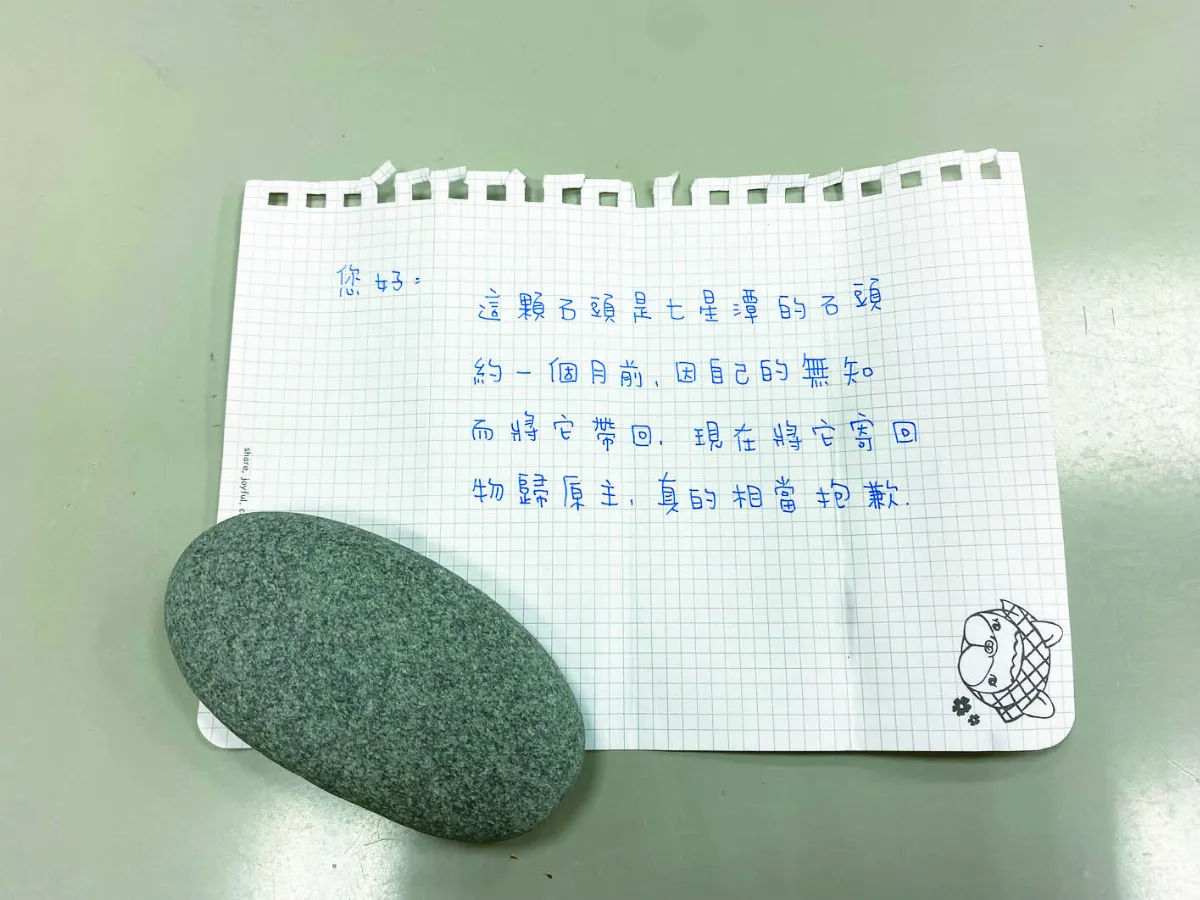 您好:
這顆石頭是七星潭的石頭
約一個月前、因自己的無知
而將它帶回、現在將它寄回
物歸原主、真的相當抱歉.
share, joyful,